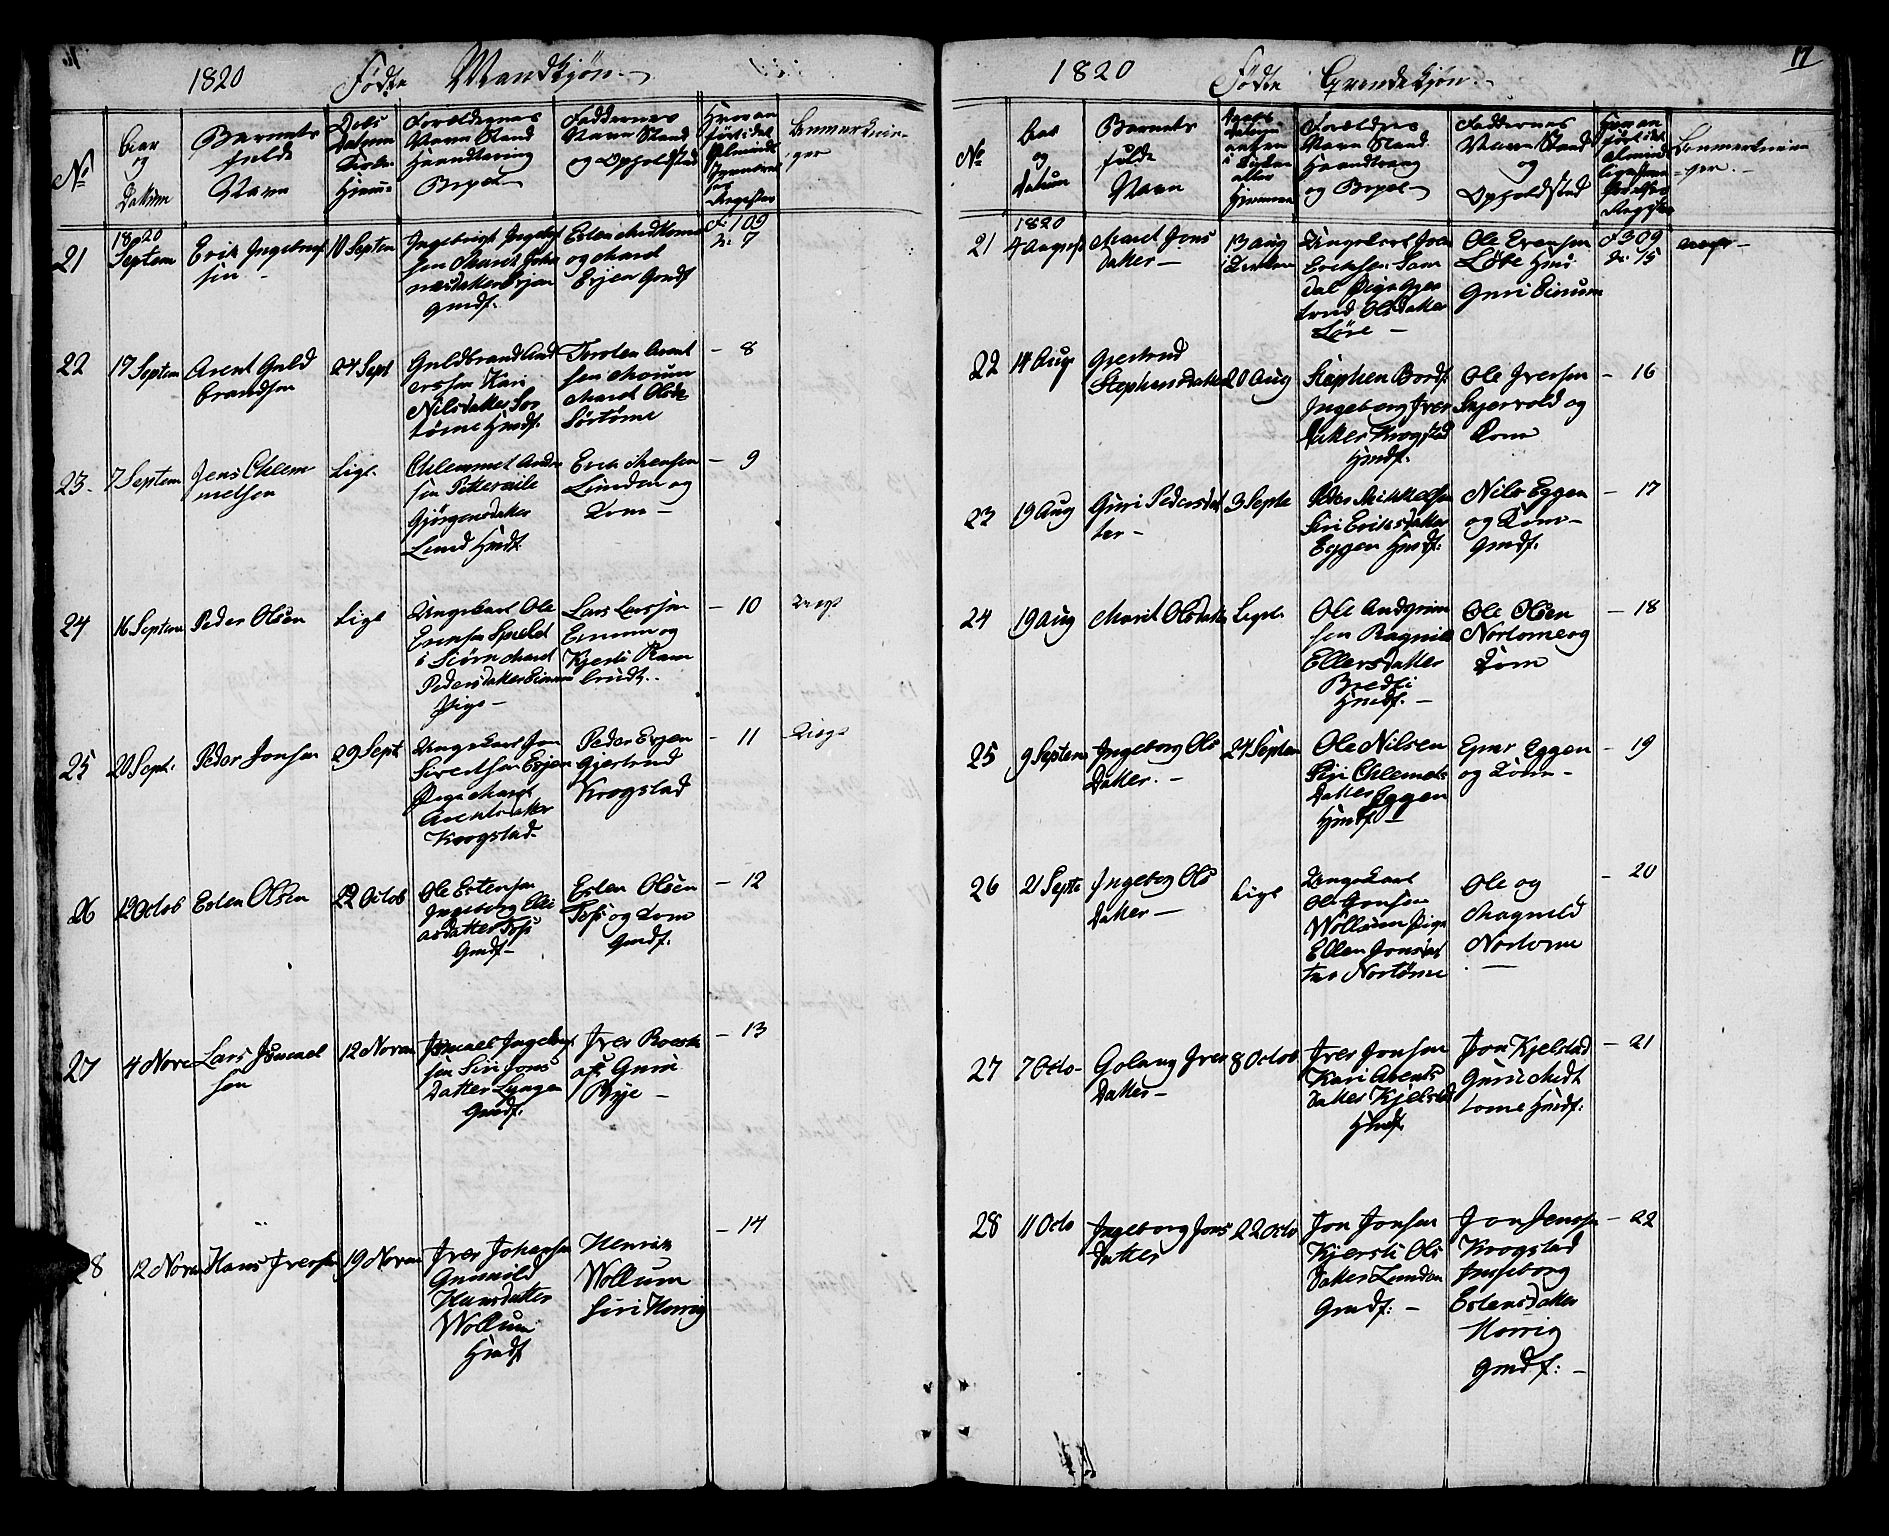 1820 Födte Mandkjøn.
No
Aar
og
Datum
Barnets
fulde
Navn
Daabs
Datum
Kirke
Hjemme
Forældrenes
Navn Stand
Haandtering
Bopæl
Faddernes
Navn Stand
og Opholdstad
Hvor an
ført i det
Almindl
Jevnførel
Register
Anmærknin
ger
21
1820
Septem
Erik Ingebrigt
sen
10 Septem
Ingebrigt Ingebrigt
sen Marit Joha
nesdatter Erjen
gmdf.
Esten Midttomme
og Marit
Erjen Gmdf
F 109
N. 7
22
17 Septem
Arent Guld
brandsen
24 Sept
Guldbrand And
erssen Kari
Nilsdatter Sør
tømme Hmdf.
Torsten Arent
sen
Marit Olsda
Sørtømme
- 8
23.
7 Septem
Jens Chlem
metsen
Ligl.
Chlemmet Andr
sen
Gjörgensdatter
Lund Hmdf.
Erik Monsen
Lundan og
Kone -
- 9
24
16 Septem
Peder Olsen
Ligl
Ungekarl Ole
Erensen
i Støren Marit
Pedersdatter Einum
Pige -
Lars Larssen
Einum og
Kjersti Ram
brudt.
- 10
Uægt
25
20 Sept.
Peder Jonsen
29 Sept
Ungekarl Jon
Sivertsen Erjen
Pige Marit
Arentsdatter
Krogstad
Peder Erjen
Gjertrud
Krogstad
- 11
Uægt
26
12 Octob
Esten Olsen
22 Octob
Ole Estensen
Ingeborg Eli
asdatter
Gmdf -
Esten Olsen
og Kone
Gmdf.
- 12
27
4 Nove
Lars Ismael
sen
12 Novem
Ismael Ingebrigt
sen Siri Jons
Datter Lyngen
Gmdf.
Iver
Guri
Bye -
- 13
28
12 Novem
Hans Iversen
19 Novem
Iver Johansen
Gunnild
Hansdatter
Wollum
Hmdf
Henrik
Wollum
Siri Horrig
- 14
1820 Födte Qvindekjøn.
17
No
Aar
og
Datum
Barnets
fulde
Navn
Daabs
i Kirken
eller
Hjemme
Forældrenes
Navn Stand
Haandtering
og Bopæl
Faddernes
Navn Stand
og
Opholdstad
Hvor an
ført i det
Almind
Register
Anmærknin
ger. -
21
1820
4 August
Marit Jons
datter -
13 Aug
i Kirken
Ungekarl Jon
Eriksen Sam
dal Pige Gjer
trud Olsdatter
Löre -
Ole Evensen
Löre Hmd
Guri Einum
F 309
N. 15
uægt -
22
14 Aug
Gjertrud
Stephensdatter
20 Aug
Stephen Bordt
Ingeborg Iver
datter Krogstad
Hmdf.
Ole Iversen
Skjervold og
Kone
- 16
23
19 Aug
Guri Pedersdat
ter -
3 Septe
Peder Mikkelsen
Siri Eriksdatter
Eggen Hmdf.
Nils Eggen
og Kone -
gmdf.
- 17
24
19 Aug
Marit Olsdatter
Ligl.
Ole Andgrim
sen Ragnil
Ellersdatter
Bredli
Hmdf. -
Ole Olsen
Nortome og
Kone
- 18
25
9 Septem
Ingeborg Ols
Datter. -
24 Septem
Ole Nilsen
Siri Chlemets
Datter Eggen
Hmdf -
Einer Eggen
og Kone -
- 19
26
21 Septe
Ingebog Ols
Datter -
Ligl
Ungekarl
Ole Jonsen
Wollum Pige
Ellen Jonsdat
ter Nortömme
Ole og
Magnild
Nortome
- 20
27
7 Octo -
Golaug Iver
Datter -
8 Octob
Iver Jonsen
Kari Arents
datter Kjelstad
Hmdf.
Jon Kjelstad
Guri Midt
tome Hmdf.
- 21
28
11 Octo
Ingeborg Jons
Datter
22 Octo
Jon Jonsen
Kjersti Ols
datter Lundan
Gmdf. -
Jon Jenssen
Krogstad
Ingeborg
Estensdatter
Horrig
gmdf. -
- 22